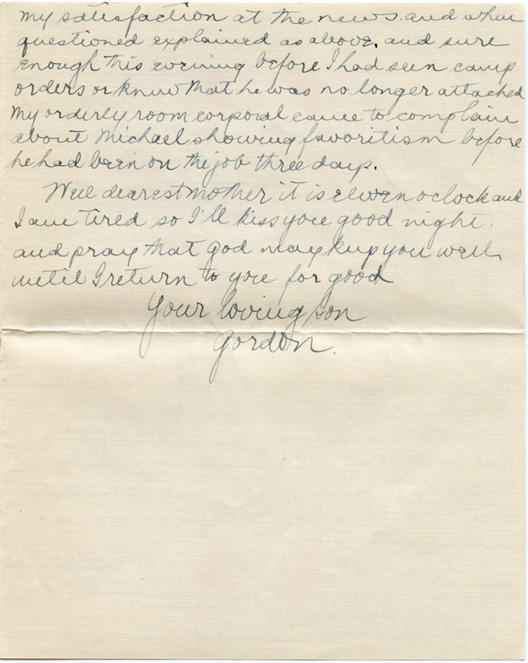 my satisfaction at the news. and when
questioned explained as above, and sure
enough this evening before I had seen camp
orders or knew that he was no longer attached
my orderly room corporal came to complain
about Michael showing favoritism before
he had been on the job three days.
Well dearest mother it is eleven oclock and
I am tired so I'll kiss you good night.
and pray that God may keep you well
until I return to you for good
Your loving son
Gordon.